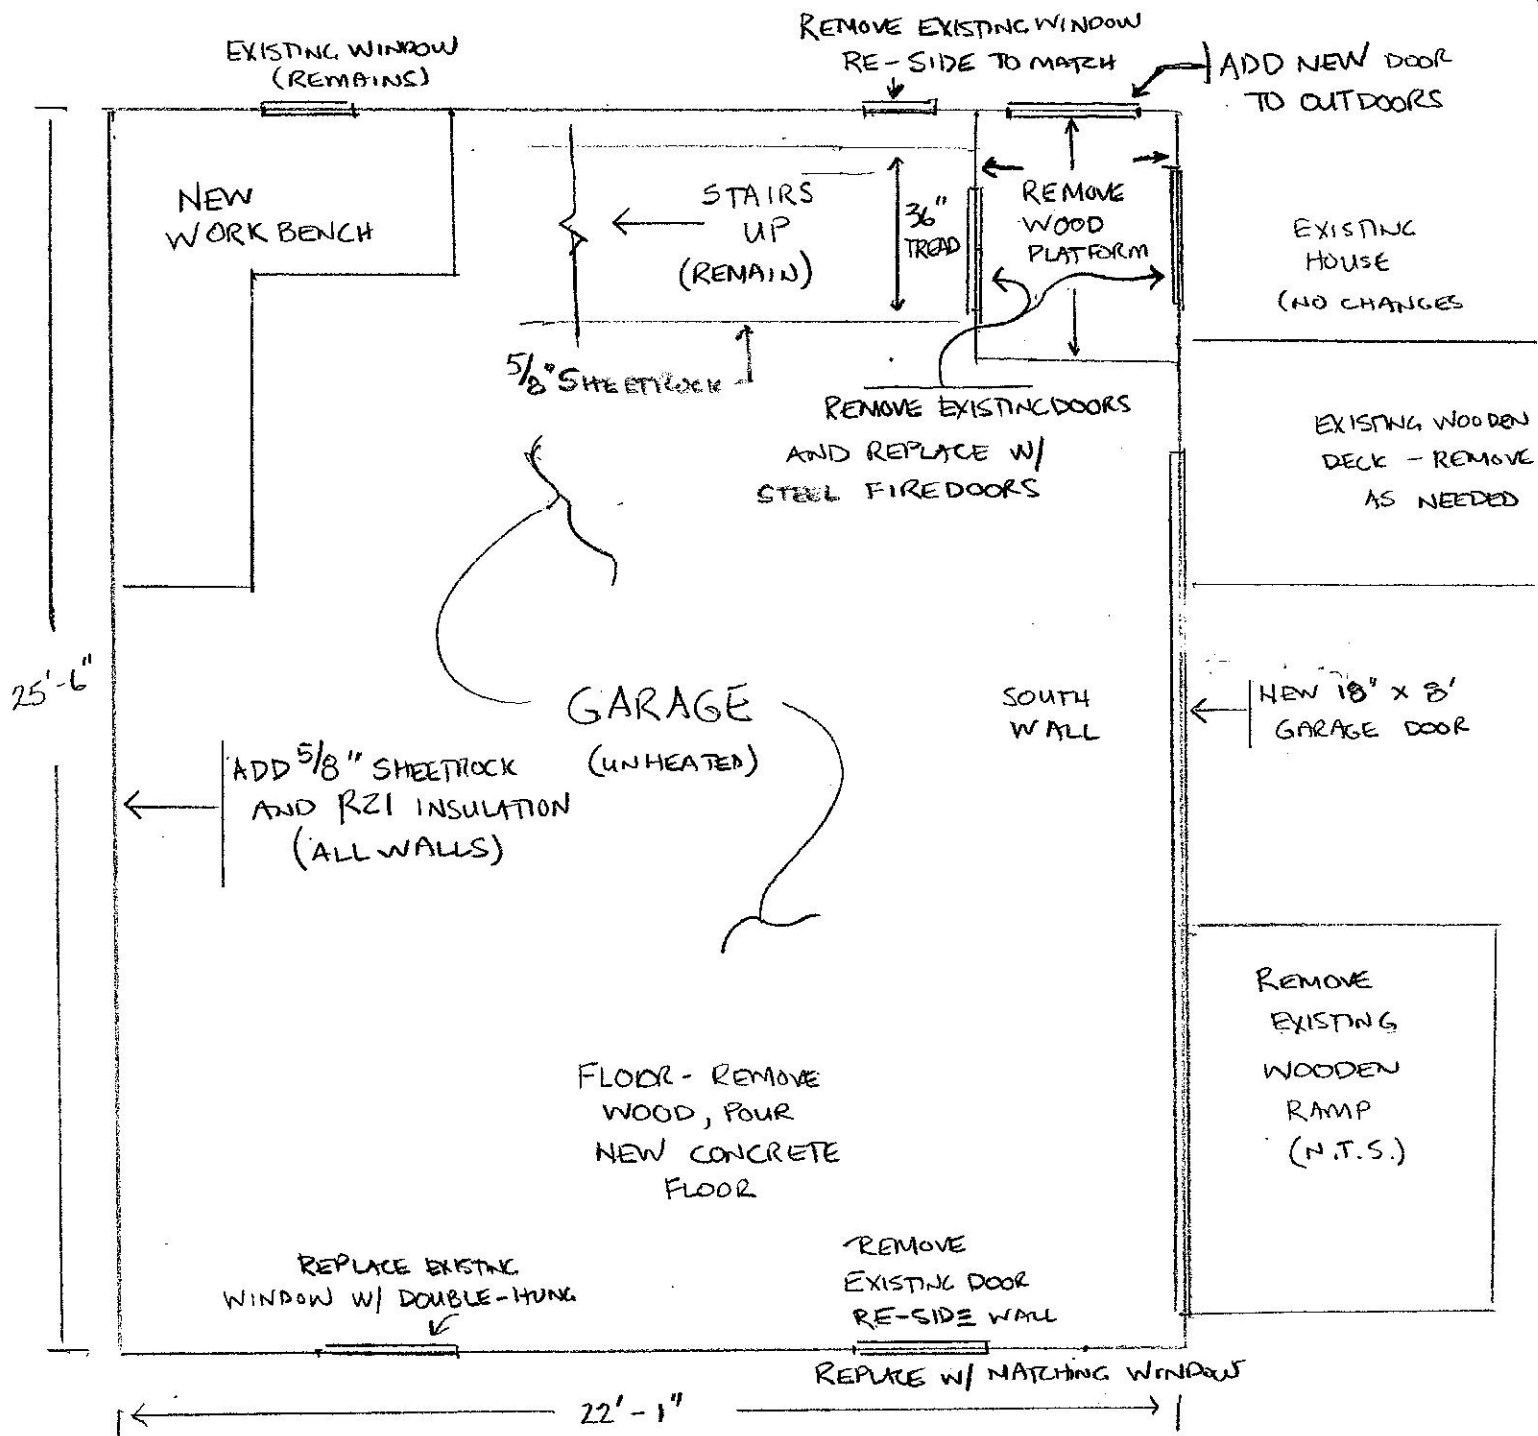 EXISTING WINDOW
(REMAINS)
REMOVE EXISTING WINDOW
RE-SIDE TO MATCH
ADD NEW DOOR
TO OUTDOORS
NEW
WORKBENCH
STAIRS
UP
(REMAIN)
36"
TREAD
REMOVE
WOOD
PLATFORM
EXISTING
HOUSE
(NO CHANGES
5/8" SHEETROCK
REMOVE EXISTING DOORS
AND REPLACE W/
STEEL FIREDOORS
EXISTING WOODEN
DECK - REMOVE
AS NEEDED
25'-6"
GARAGE
(UNHEATED)
SOUTH
WALL
NEW 18" x 8'
GARAGE DOOR
ADD 5/8" SHEETROCK
AND R21 INSULATION
(ALL WALLS)
REMOVE
EXISTING
WOODEN
RAMP
(N.T.S.)
FLOOR - REMOVE
WOOD, POUR
NEW CONCRETE
FLOOR
REPLACE EXISTING
WINDOW W/ DOUBLE-HUNG
REMOVE
EXISTING DOOR
RE-SIDE WALL
REPLACE W/ MATCHING WINDOW
22'-1"